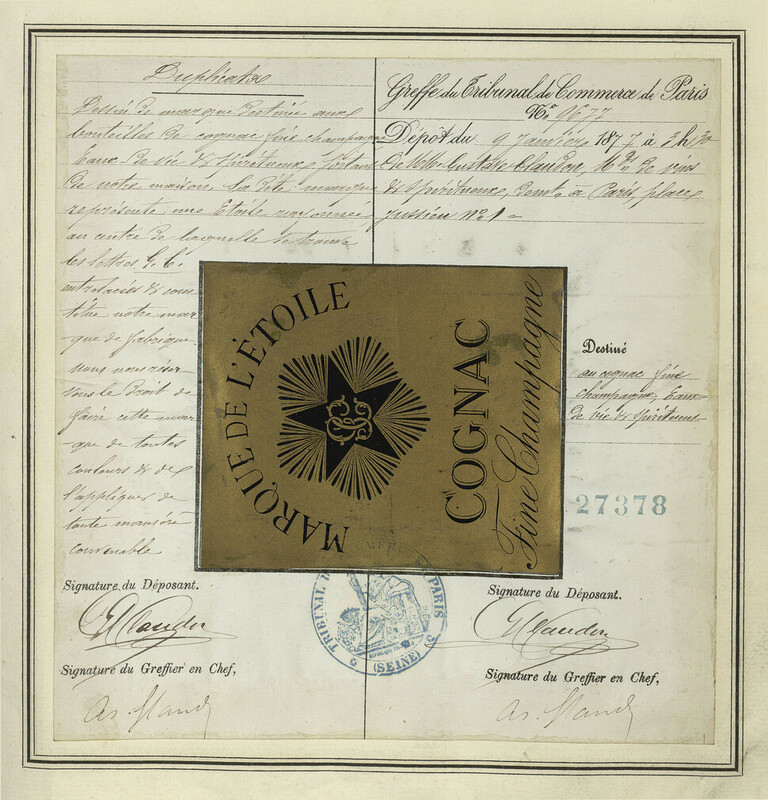 Duplicata
Dessin de marque destinée aux
bouteilles de cognac fine champagne
Eaux-de-Vie & Spiritueux sortant
de notre maison. La dite marque
représente une Etoile rayonnée
au centre de laquelle se trouve
les lettres G. C.
entrelacées & cons
titue notre mar
que de fabrique
nous nous réser
vons le Droit de
faire cette mar
-que de toutes
couleurs & de
l'appliquer de
toute manière
convenable
Signature du Déposant.
G Claudon
Signature du Greffier en Chef,
Greffe du Tribunal de Commerce de Paris
No. 9677
Dépôt du 9 Janvier 1877 à 3 h 30
de Mr. Gustave Claudon, Md. de vins
& Spiritueux, demt. à Paris, place
Jussieu no. 1 =
MARQUE DE L'ÉTOILE
GC
COGNAC
Fine Champagne
Destiné
au cognac fine
champagne, Eaux
de vie & Spiritueux
27378
TRIBUNAL DE COMMERCE PARIS
(SEINE)
Signature du Déposant.
G Claudon
Signature du Greffier en Chef,